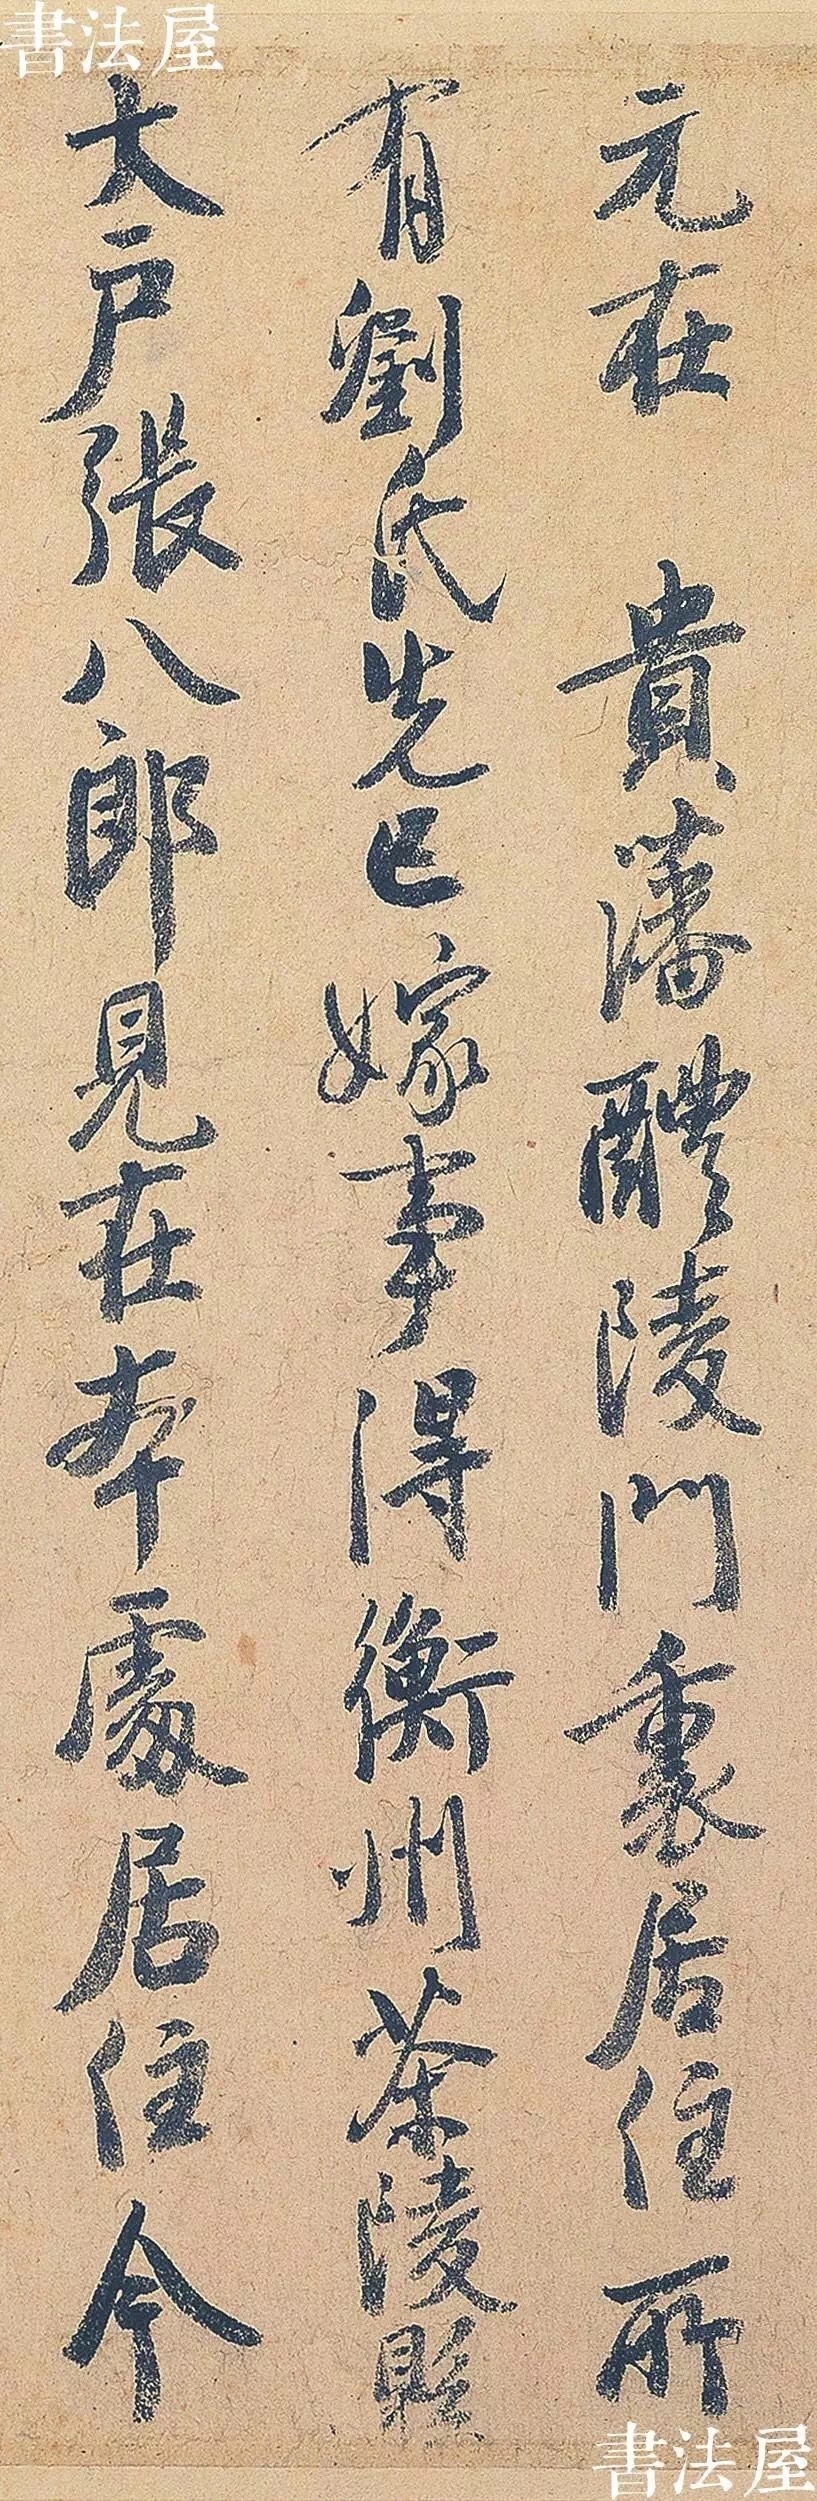 書法屋
元在 貴藩醴陵門裏居住所
有劉氏先已嫁事得衡州茶陵縣
大户張八郎見在本處居住今
書法屋